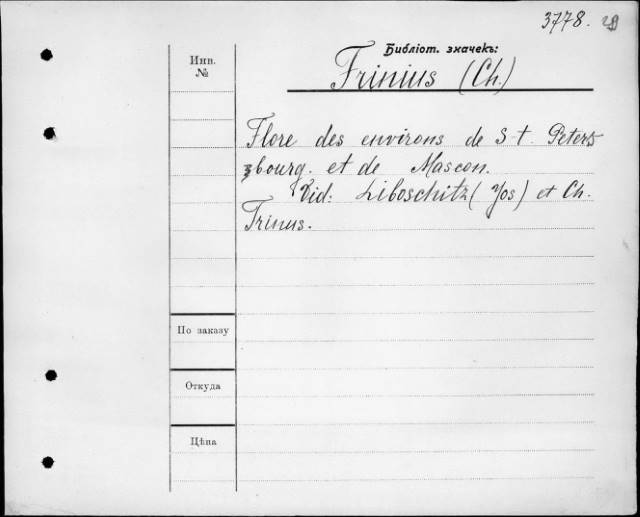 3778.
Библіот. значекъ:
Инв.
№
Trinius (Ch.)
Flore des environs de S-t. Peters
bourg. et de Moscou.
Vid: Liboschitz (Jos) et Ch.
Trinus.
По заказу
Откуда
Цѣна